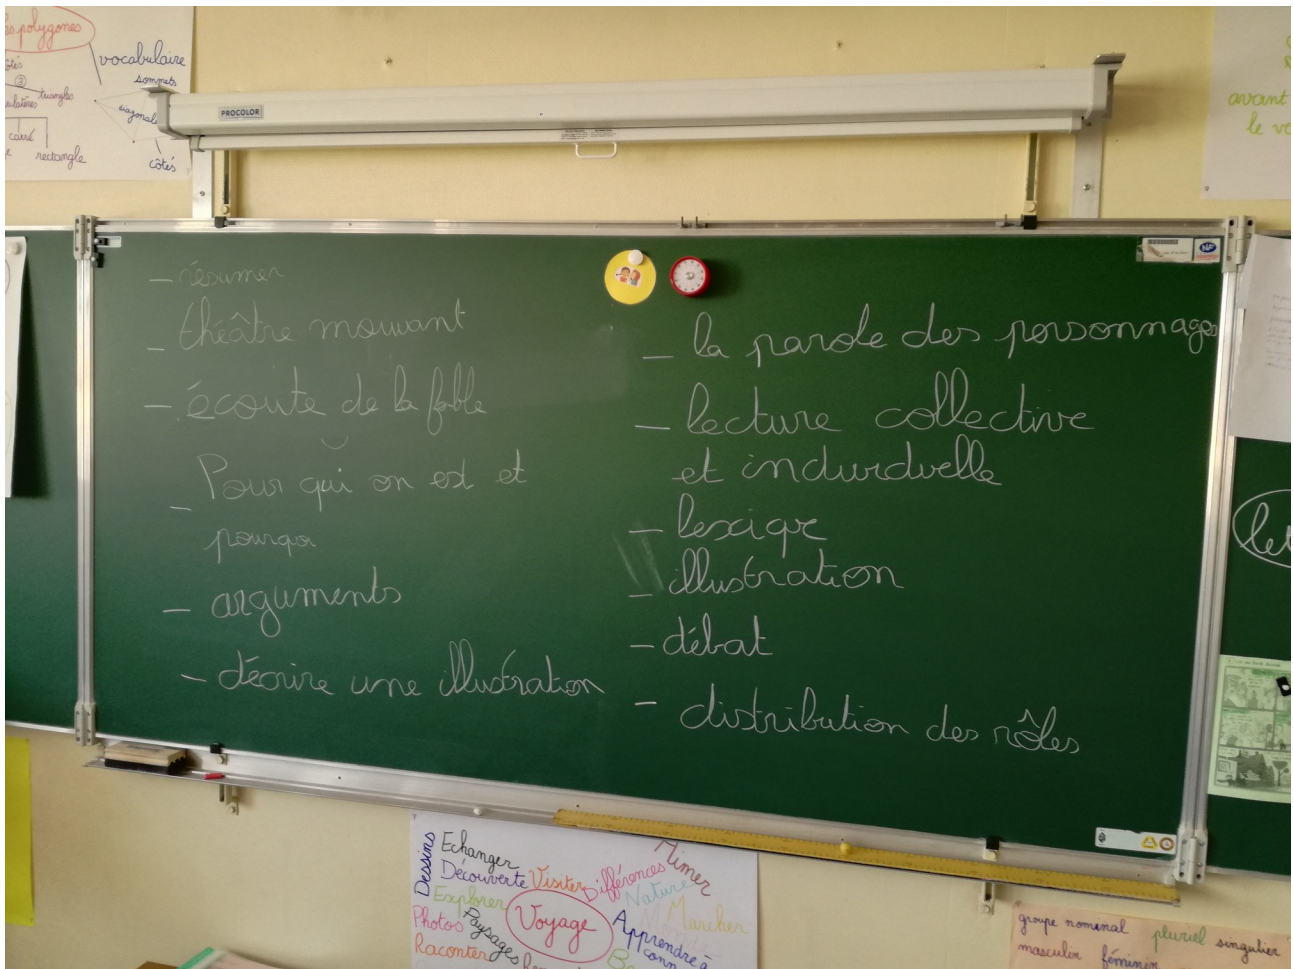 es polygones
vocabulaire
sommets
triangles
diagonale
carré
rectangle
côtés
PROCOLOR
avant
le
- résumer
- théâtre mouvant
- écoute de la fable
- Pour qui on est et
pourquoi
- arguments
- décrire une illustration
- la parole des personnages
- lecture collective
et individuelle
- lexique
- illustration
- débat
- distribution des rôles
NF
Dessins
Echanger
Découverte
Visiter
Différences
Mimer
Explorer
Nature
Photos
Paysages
Voyage
Marcher
Raconter
Apprendre à
conn
groupe nominal pluriel singulier
masculin féminin